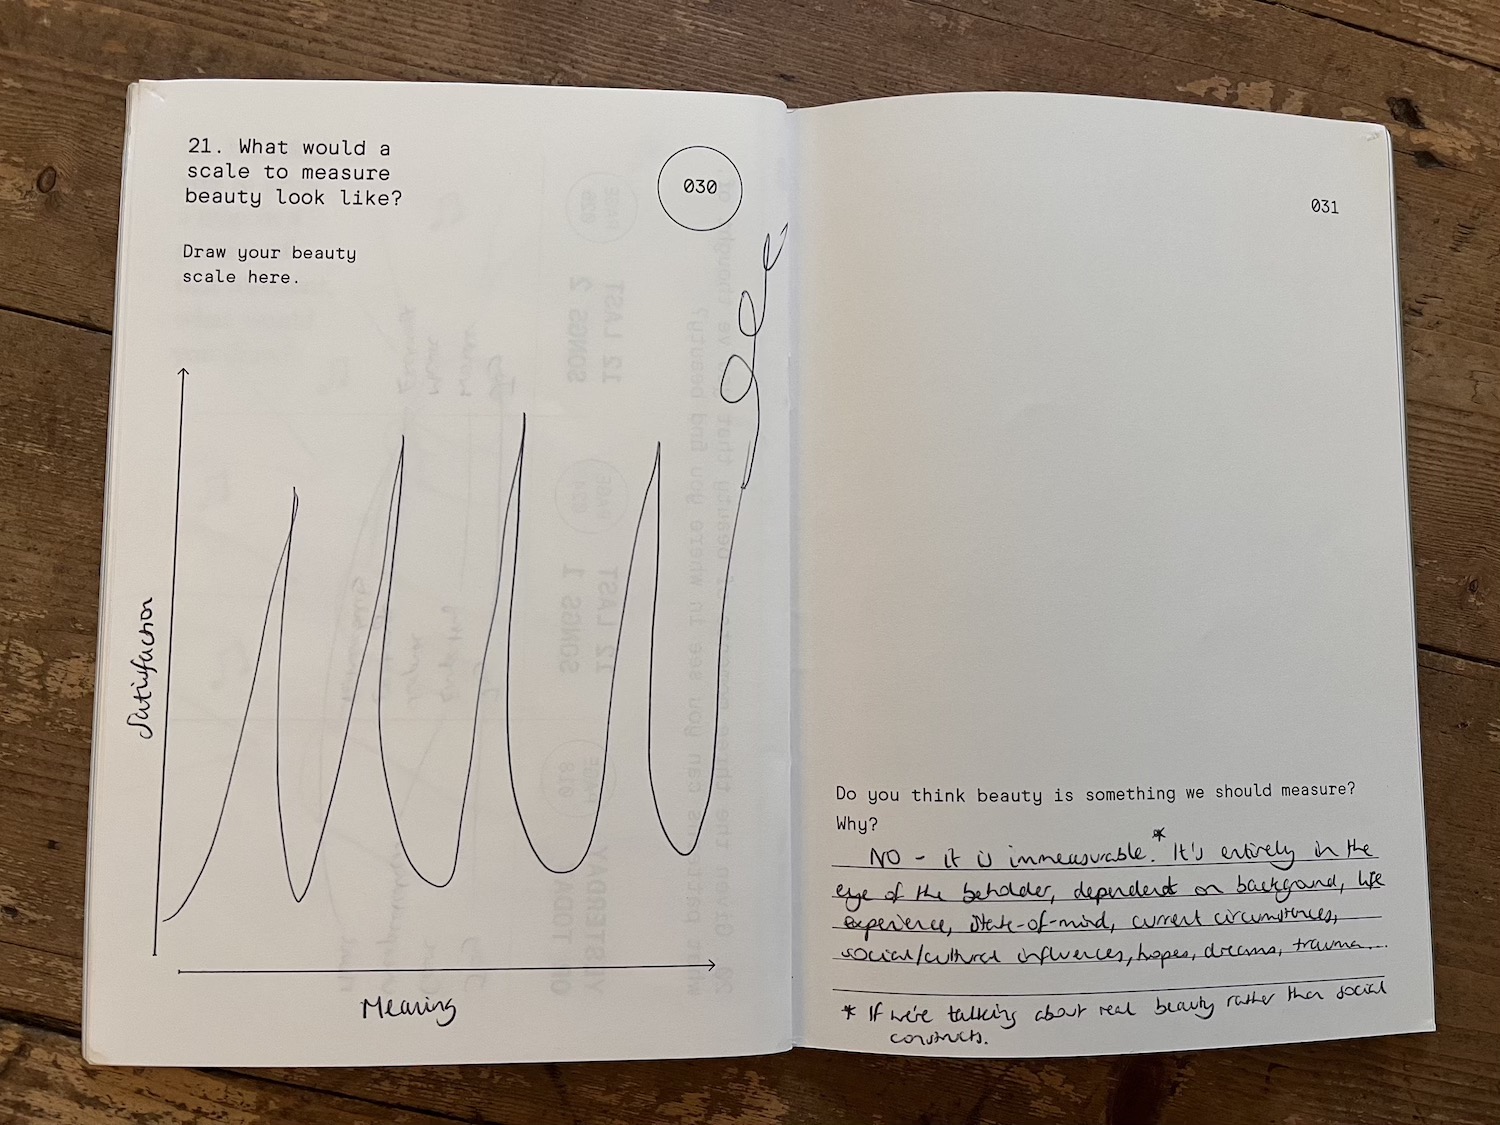 21. What would a
scale to measure
beauty look like?
030
Draw your beauty
scale here.
Satisfaction
Meaning
031
Do you think beauty is something we should measure?
Why?
NO - it is immeasurable.* It's entirely in the
eye of the beholder, dependent on background, life
experience, state-of-mind, current circumstances,
social/cultural influences, hopes, dreams, trauma...
* If we're talking about real beauty rather than social
constructs.